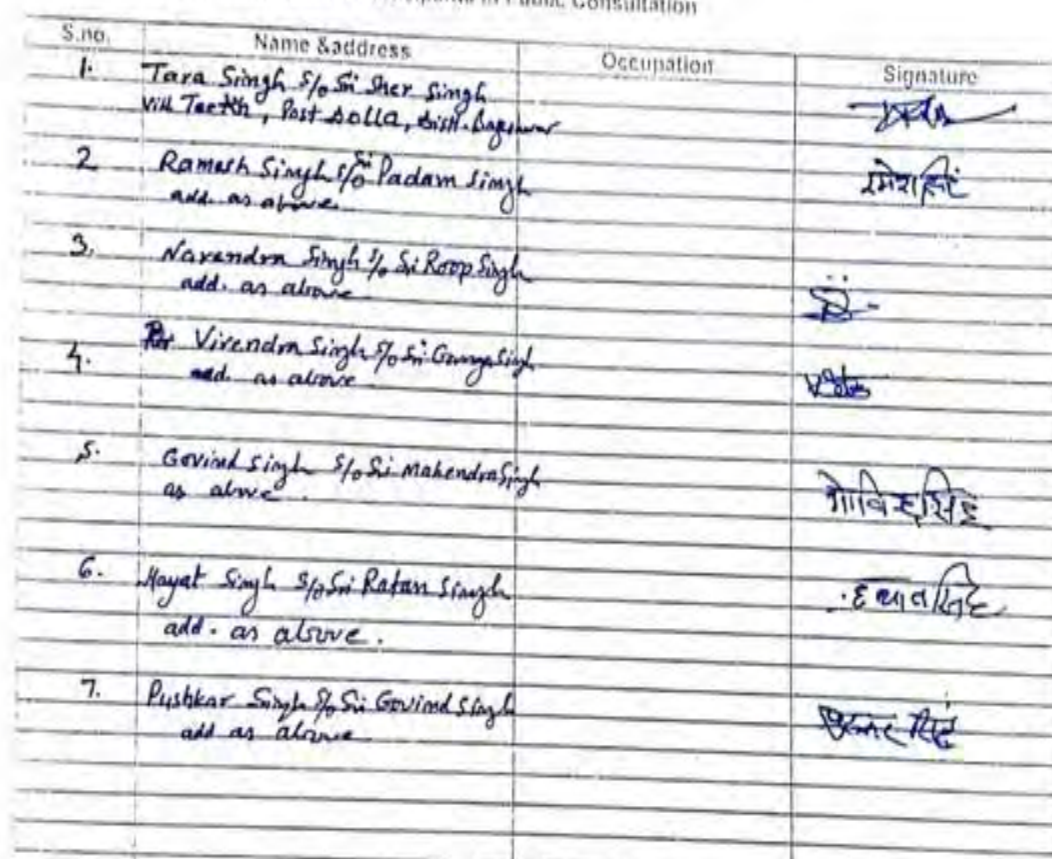 in Public Consultation
S.no. Name &address Occupation Signature
1. Tara Singh S/o Sri Sher Singh
Vill Teeth, Post Dolla, Distt. Bageshwar
2 Ramesh Singh S/o Sri Padam Singh रमेश सिंह
add. as above
3. Narendra Singh S/o Sri Roop Singh
add. as above
4. Virendra Singh S/o Sri Ganga Singh
add. as above
5. Govind Singh S/o Sri Mahendra Singh गोविन्द सिंह
as abve.
6. Hayat Singh S/o Sri Ratan Singh हयात सिंह
add. as above.
7. Pushkar Singh S/o Sri Govind Singh
add as above